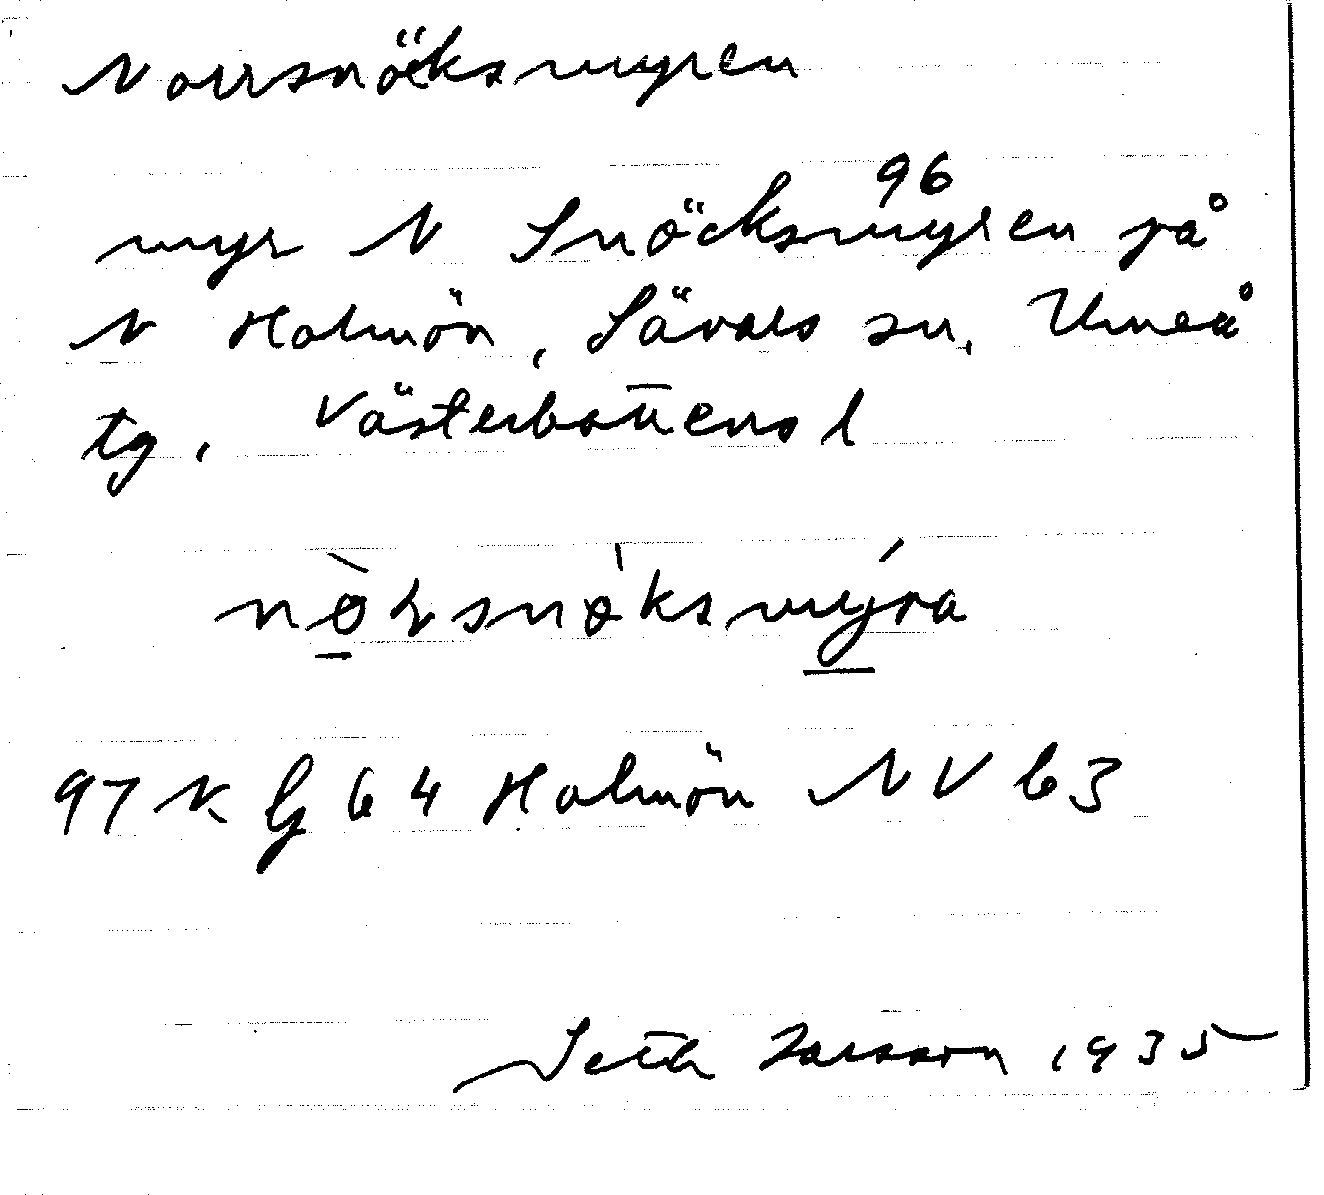 Norrsnöksmyren
96
myr N Snöcksmyren på
N Holmön, Sävars sn, Umeå
tg, Västerbottens l
97 N G 64 Holmön NV b3
Seth Larsson 1935